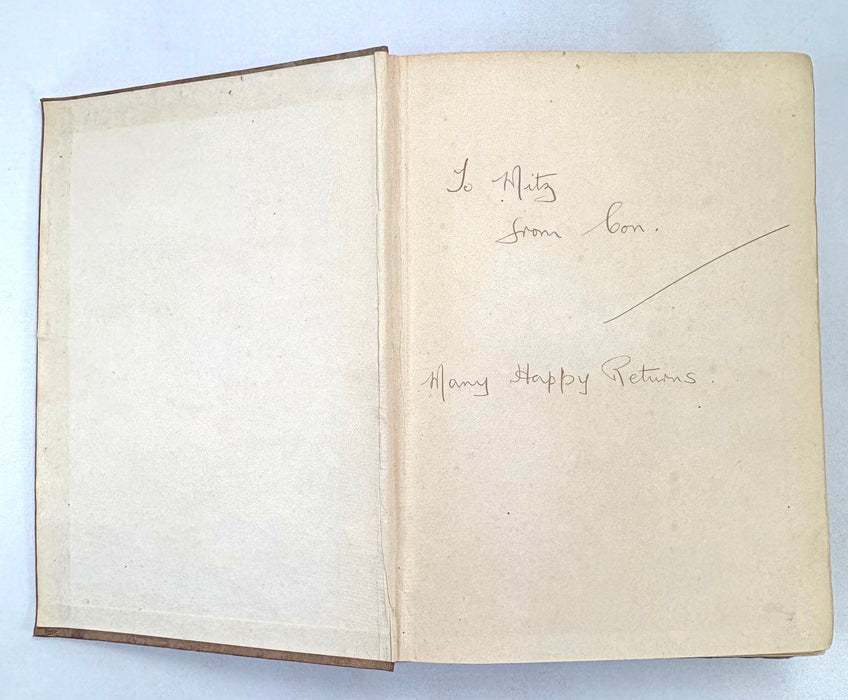 To Mitz
from Con.
Many Happy Returns.